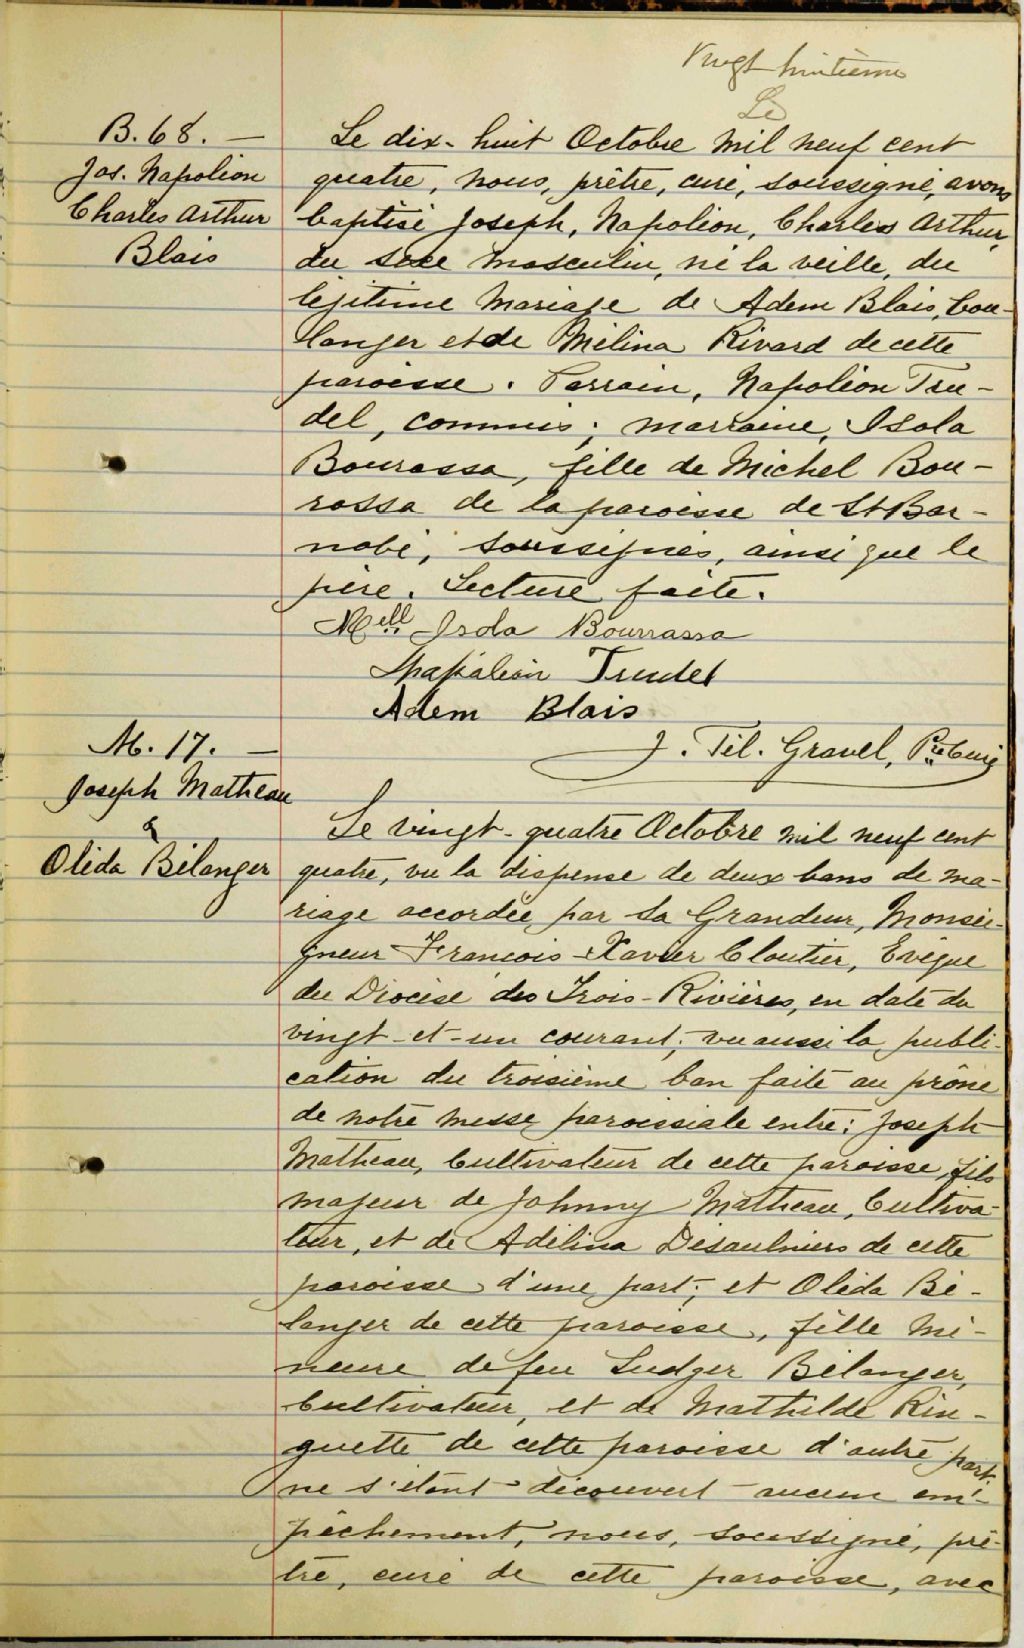 Vingt huitième
Le
B. 68. —
Jos. Napoléon
Charles Arthur
Blais
Le dix-huit Octobre mil neuf cent
quatre, nous, prêtre, curé, soussigné, avons
baptisé Joseph, Napoléon, Charles Arthur,
du sexe masculin, né la veille, du
légitime mariage de Adem Blais, bou-
langer et de Mélina Rivard de cette
paroisse. Parrain, Napoléon Tru-
del, commis; marraine, Isola
Bourassa, fille de Michel Bou-
rassa de la paroisse de St Bar-
nabé, soussignés, ainsi que le
père. Lecture faite.
Mell Isola Bourrassa
Napoléon Trudel
Adem Blais
J. Tél. Gravel, Ptre Curé
M. 17. —
Joseph Matheau
&
Oléda Bélanger
Le vingt-quatre Octobre mil neuf cent
quatre, vu la dispense de deux bans de ma-
riage accordée par Sa Grandeur, Monsei-
gneur François-Xavier Cloutier, Evêque
du Diocèse des Trois-Rivières, en date du
vingt-et-un courant; vu aussi la publi-
cation du troisième ban faite au prône
de notre messe paroissiale entre: Joseph
Matheau, Cultivateur de cette paroisse, fils
majeur de Johnny Matheau, Cultiva-
teur, et de Adélina Désaulniers de cette
paroisse d'une part; et Oléda Bé-
langer de cette paroisse, fille mi-
neure de feu Ludger Bélanger,
Cultivateur, et de Mathilde Rin-
guette de cette paroisse d'autre part;
ne s'étant découvert aucun em-
pêchement, nous, soussigné, prê-
tre, curé de cette paroisse, avec